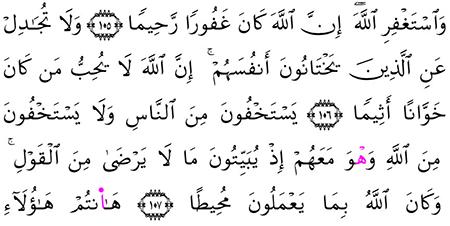 وَاَسْتَغْفِرِ اِ۬للَّهَۖ إِنَّ اَ۬للَّهَ كَانَ غَفُورٗا رَّحِيمٗا ١٠٥ وَلَا تُجَٰدِلْ
عَنِ اِ۬لذِينَ يَخْتَانُونَ أَنفُسَهُمْۚ إِنَّ اَ۬للَّهَ لَا يُحِبُّ مَن كَانَ
خَوَّانًا أَثِيمٗا ١٠٦ يَسْتَخْفُونَ مِنَ اَ۬لنَّاسِ وَلَا يَسْتَخْفُونَ
مِنَ اَ۬للَّهِ وَهْوَ مَعَهُمْ إِذْ يُبَيِّتُونَ مَا لَا يَرْضَىٰ مِنَ اَ۬لْقَوْلِۚ
وَكَانَ اَ۬للَّهُ بِمَا يَعْمَلُونَ مُحِيطًا ١٠٧ هَٰٓانتُمْ هَٰٓؤُلَآءِ